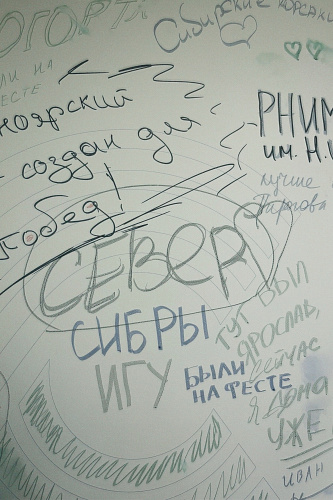 ОГОРТА
Сибирские корсаки
ЛИ НА
ЕСТЕ
ноярский
создан для
побед!
РНИМ
им. Н.И
лучше
Пирогова
СЕВЕР
СИБРЫ
ИГУ
БЫЛИ
НА ФЕСТЕ
ТУТ БЫЛ
ЯРОСЛАВ,
СЕЙЧАС
Я ДОМА
УЖЕ
ИВАН